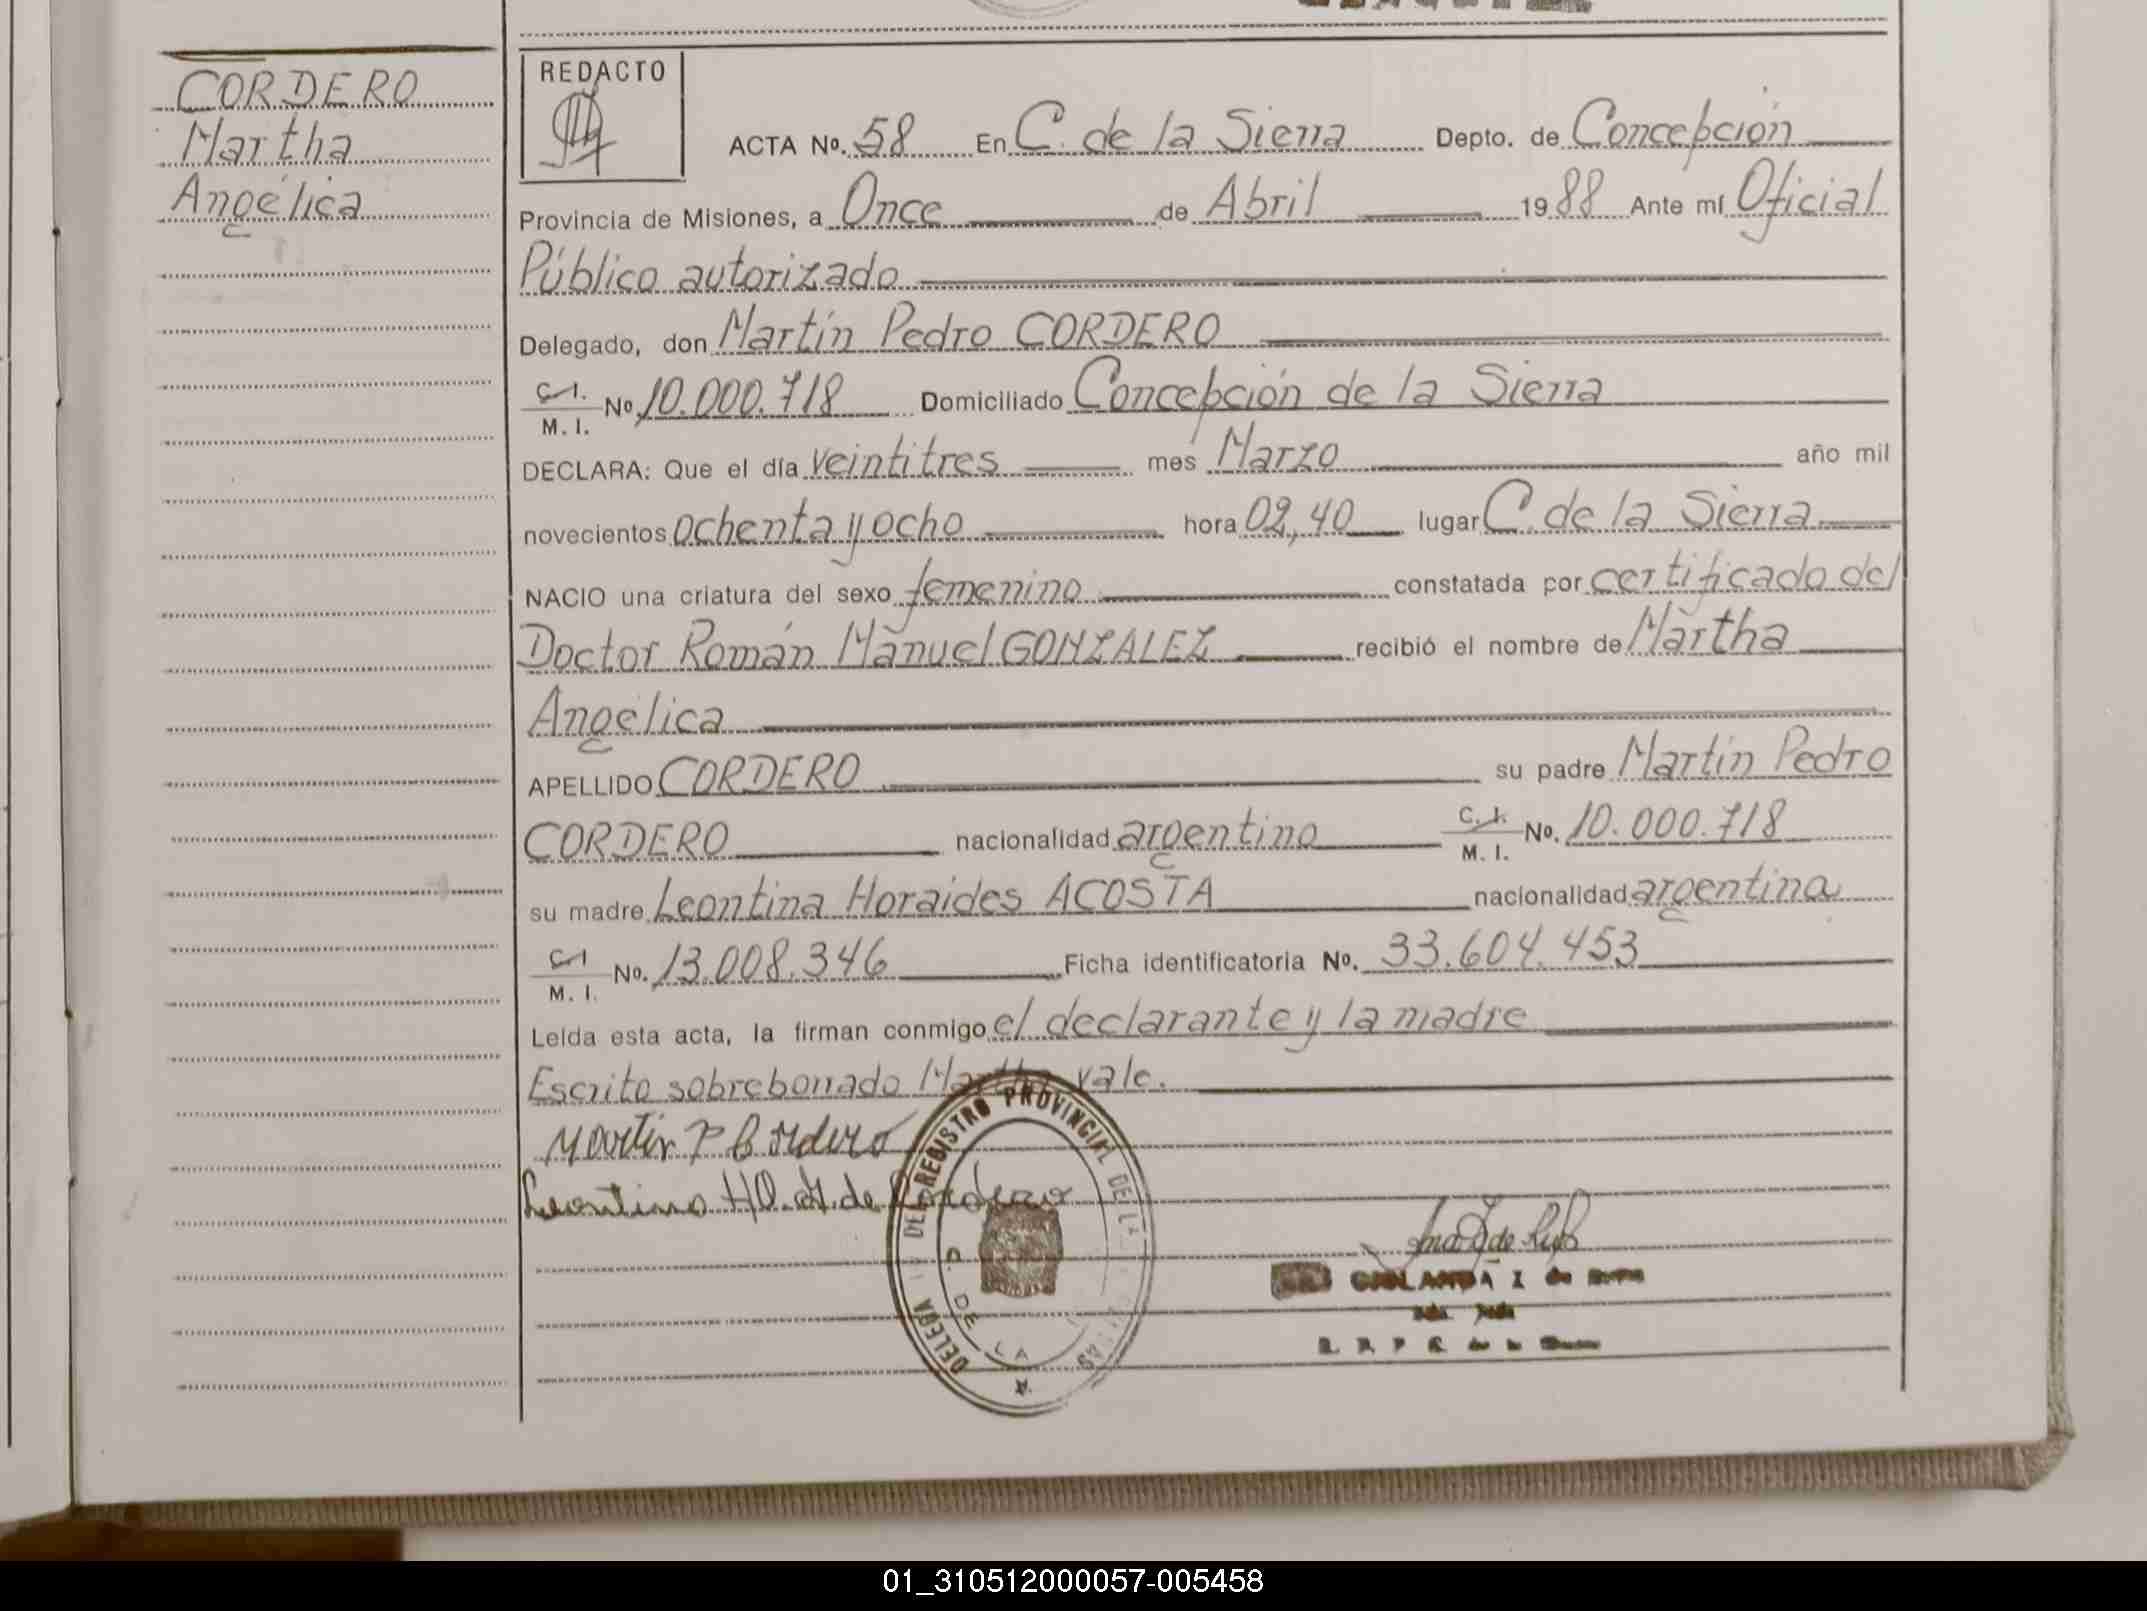 CORDERO
Martha
Angélica
REDACTO
ACTA No. 58 En C. de la Sierra Depto. de Concepción
Provincia de Misiones, a Once de Abril 1988 Ante mí Oficial
Público autorizado
Delegado, don Martín Pedro CORDERO
C.I. M.I. No 10.000.718 Domiciliado Concepción de la Sierra
DECLARA: Que el día veintitres mes Marzo año mil
novecientos ochenta y ocho hora 02,40 lugar C. de la Sierra
NACIO una criatura del sexo femenino constatada por certificado del
Doctor Román Manuel GONZALEZ recibió el nombre de Martha
Angélica
APELLIDO CORDERO su padre Martín Pedro
CORDERO nacionalidad argentino C.I. M.I. No. 10.000.718
su madre Leontina Horaides ACOSTA nacionalidad argentina
C.I M.I. No. 13.008.346 Ficha identificatoria No. 33.604.453
Leída esta acta, la firman conmigo el declarante y la madre
Escrito sobreborrado Martha vale.
Martin P Cordero
Leontina H. A. de Cordero
REGISTRO PROVINCIAL DE L
DELEGA
DE LA
01_310512000057-005458